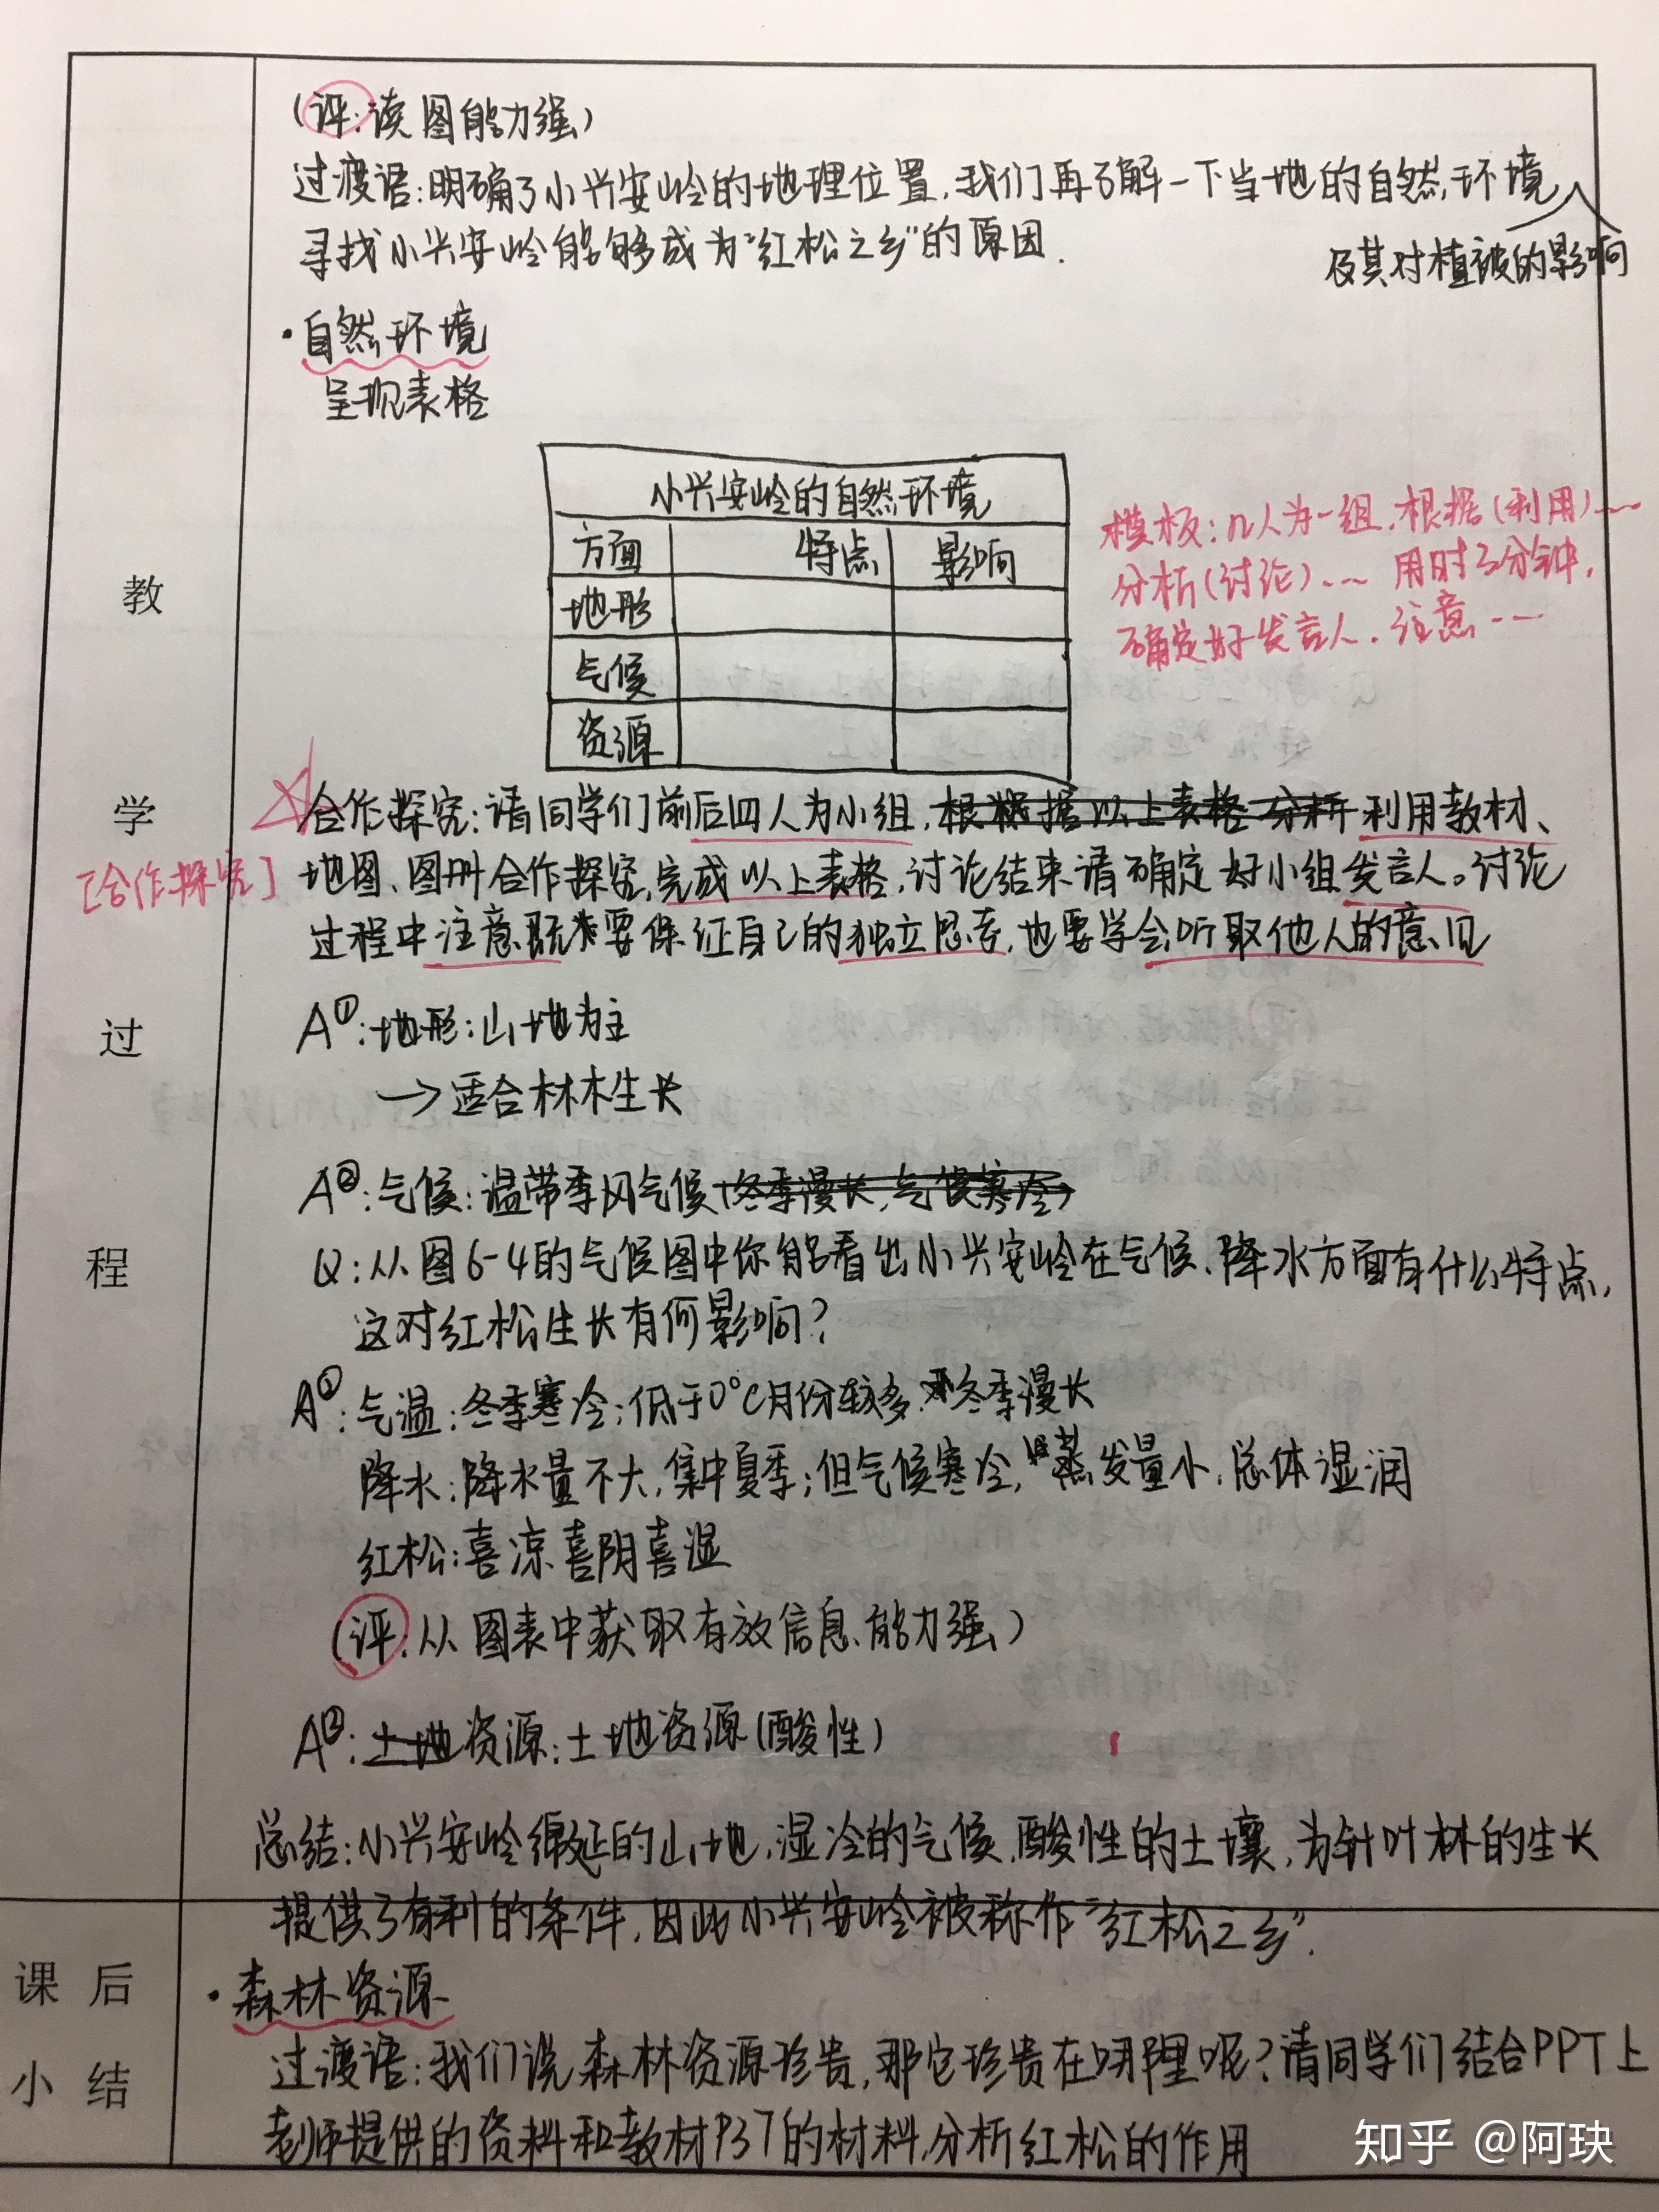 (评:读图能力强)
过渡语:明确了小兴安岭的地理位置,我们再了解一下当地的自然环境
及其对植被的影响
寻找小兴安岭能够成为"红松之乡"的原因.
·自然环境
呈现表格
小兴安岭的自然环境
方面 特点 影响
地形
气候
资源
模板:几人为一组,根据(利用)……
分析(讨论)…… 用时3分钟,
确定好发言人.注意……
教
学
过
程
[合作探究]
合作探究:请同学们前后四人为小组,根据以上表格分析利用教材、
地图、图册合作探究,完成以上表格,讨论结束请确定好小组发言人。讨论
过程中注意既要保证自己的独立思考,也要学会听取他人的意见
A①:地形:山地为主
→适合林木生长
A②:气候:温带季风气候(冬季漫长,气候寒冷)
Q:从图6-4的气候图中你能看出小兴安岭在气候、降水方面有什么特点,
这对红松生长有何影响?
A①:气温:冬季寒冷;低于0℃月份较多,冬季漫长
降水:降水量不大,集中夏季;但气候寒冷,蒸发量小,总体湿润
红松:喜凉喜阴喜湿
(评:从图表中获取有效信息能力强)
A③:土地资源:土地资源(酸性)
总结:小兴安岭绵延的山地,湿冷的气候,酸性的土壤,为针叶林的生长
提供了有利的条件,因此小兴安岭被称作"红松之乡".
课后
小结
·森林资源
过渡语:我们说森林资源珍贵,那它珍贵在哪里呢?请同学们结合PPT上
老师提供的资料和教材P37的材料,分析红松的作用
知乎 @阿玦